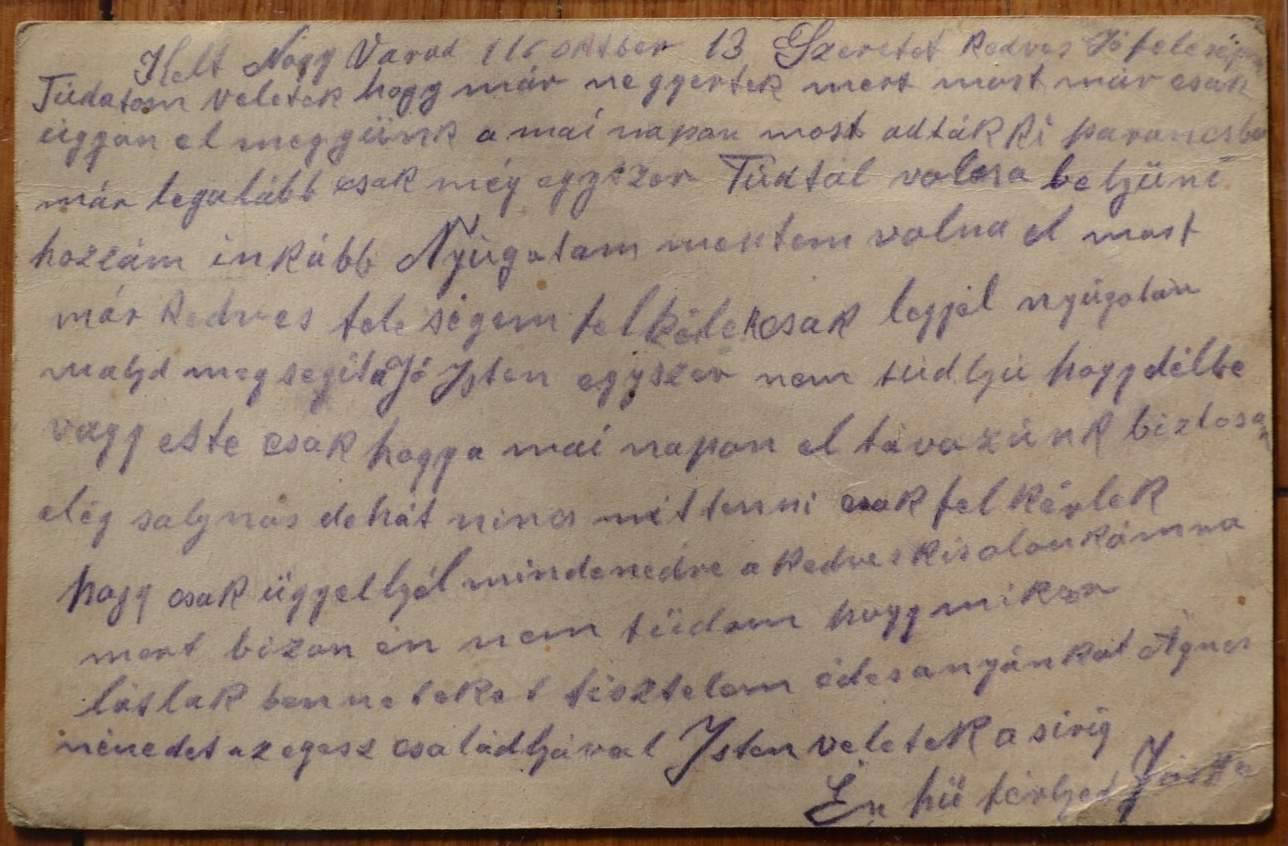 Kelt Nagy Varad 116 oktber 13 Szeretet Kedves Jó feleségem
Tudatom veletek hogy már ne gyertek mert most már csak
úggan el meggünk a mai napon most adták ki parancsba
már legalább csak még egyszer Tudtál volna beljüni
hozzám inkább Nyúgotam mentem volna el most
már kedves feleségem felkélek csak legjél nyúgotan
majd megsegít a Jó Isten egyszer nem tudljú hogy délbe
vagy este csak hogy a mai napon el távozúnk biztosan
elég saljnos dehát nincs mit tenni csak fel kérlek
hogy csak üggelljél mindenedre a kedves kis
mert bizon én nem túdom hogy mikor
látlak benneteket tisztelem édesanyánkat Ágnes
nénédet az egész családljával Isten veletek a sirig
Én hű férljed